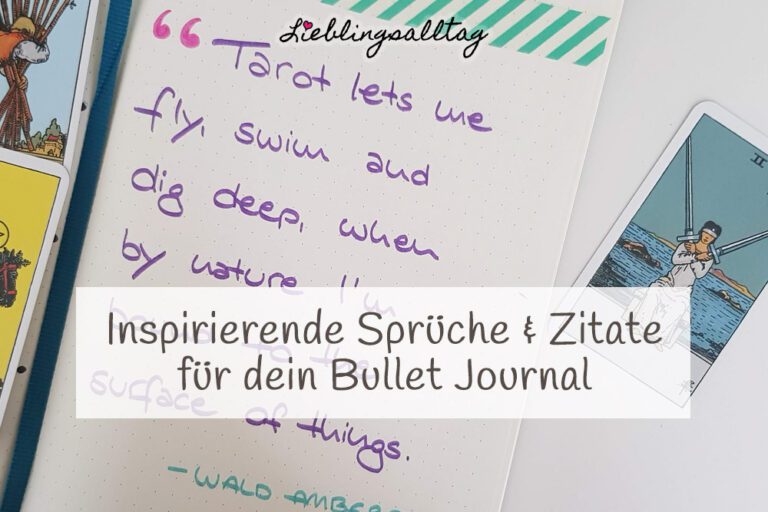 Lieblingsalltag
“Tarot lets me
fly, swim and
dig deep, when
by nature I'm
bound to the
surface of things.
—WALD AMBER
Inspirierende Sprüche & Zitate
für dein Bullet Journal
II